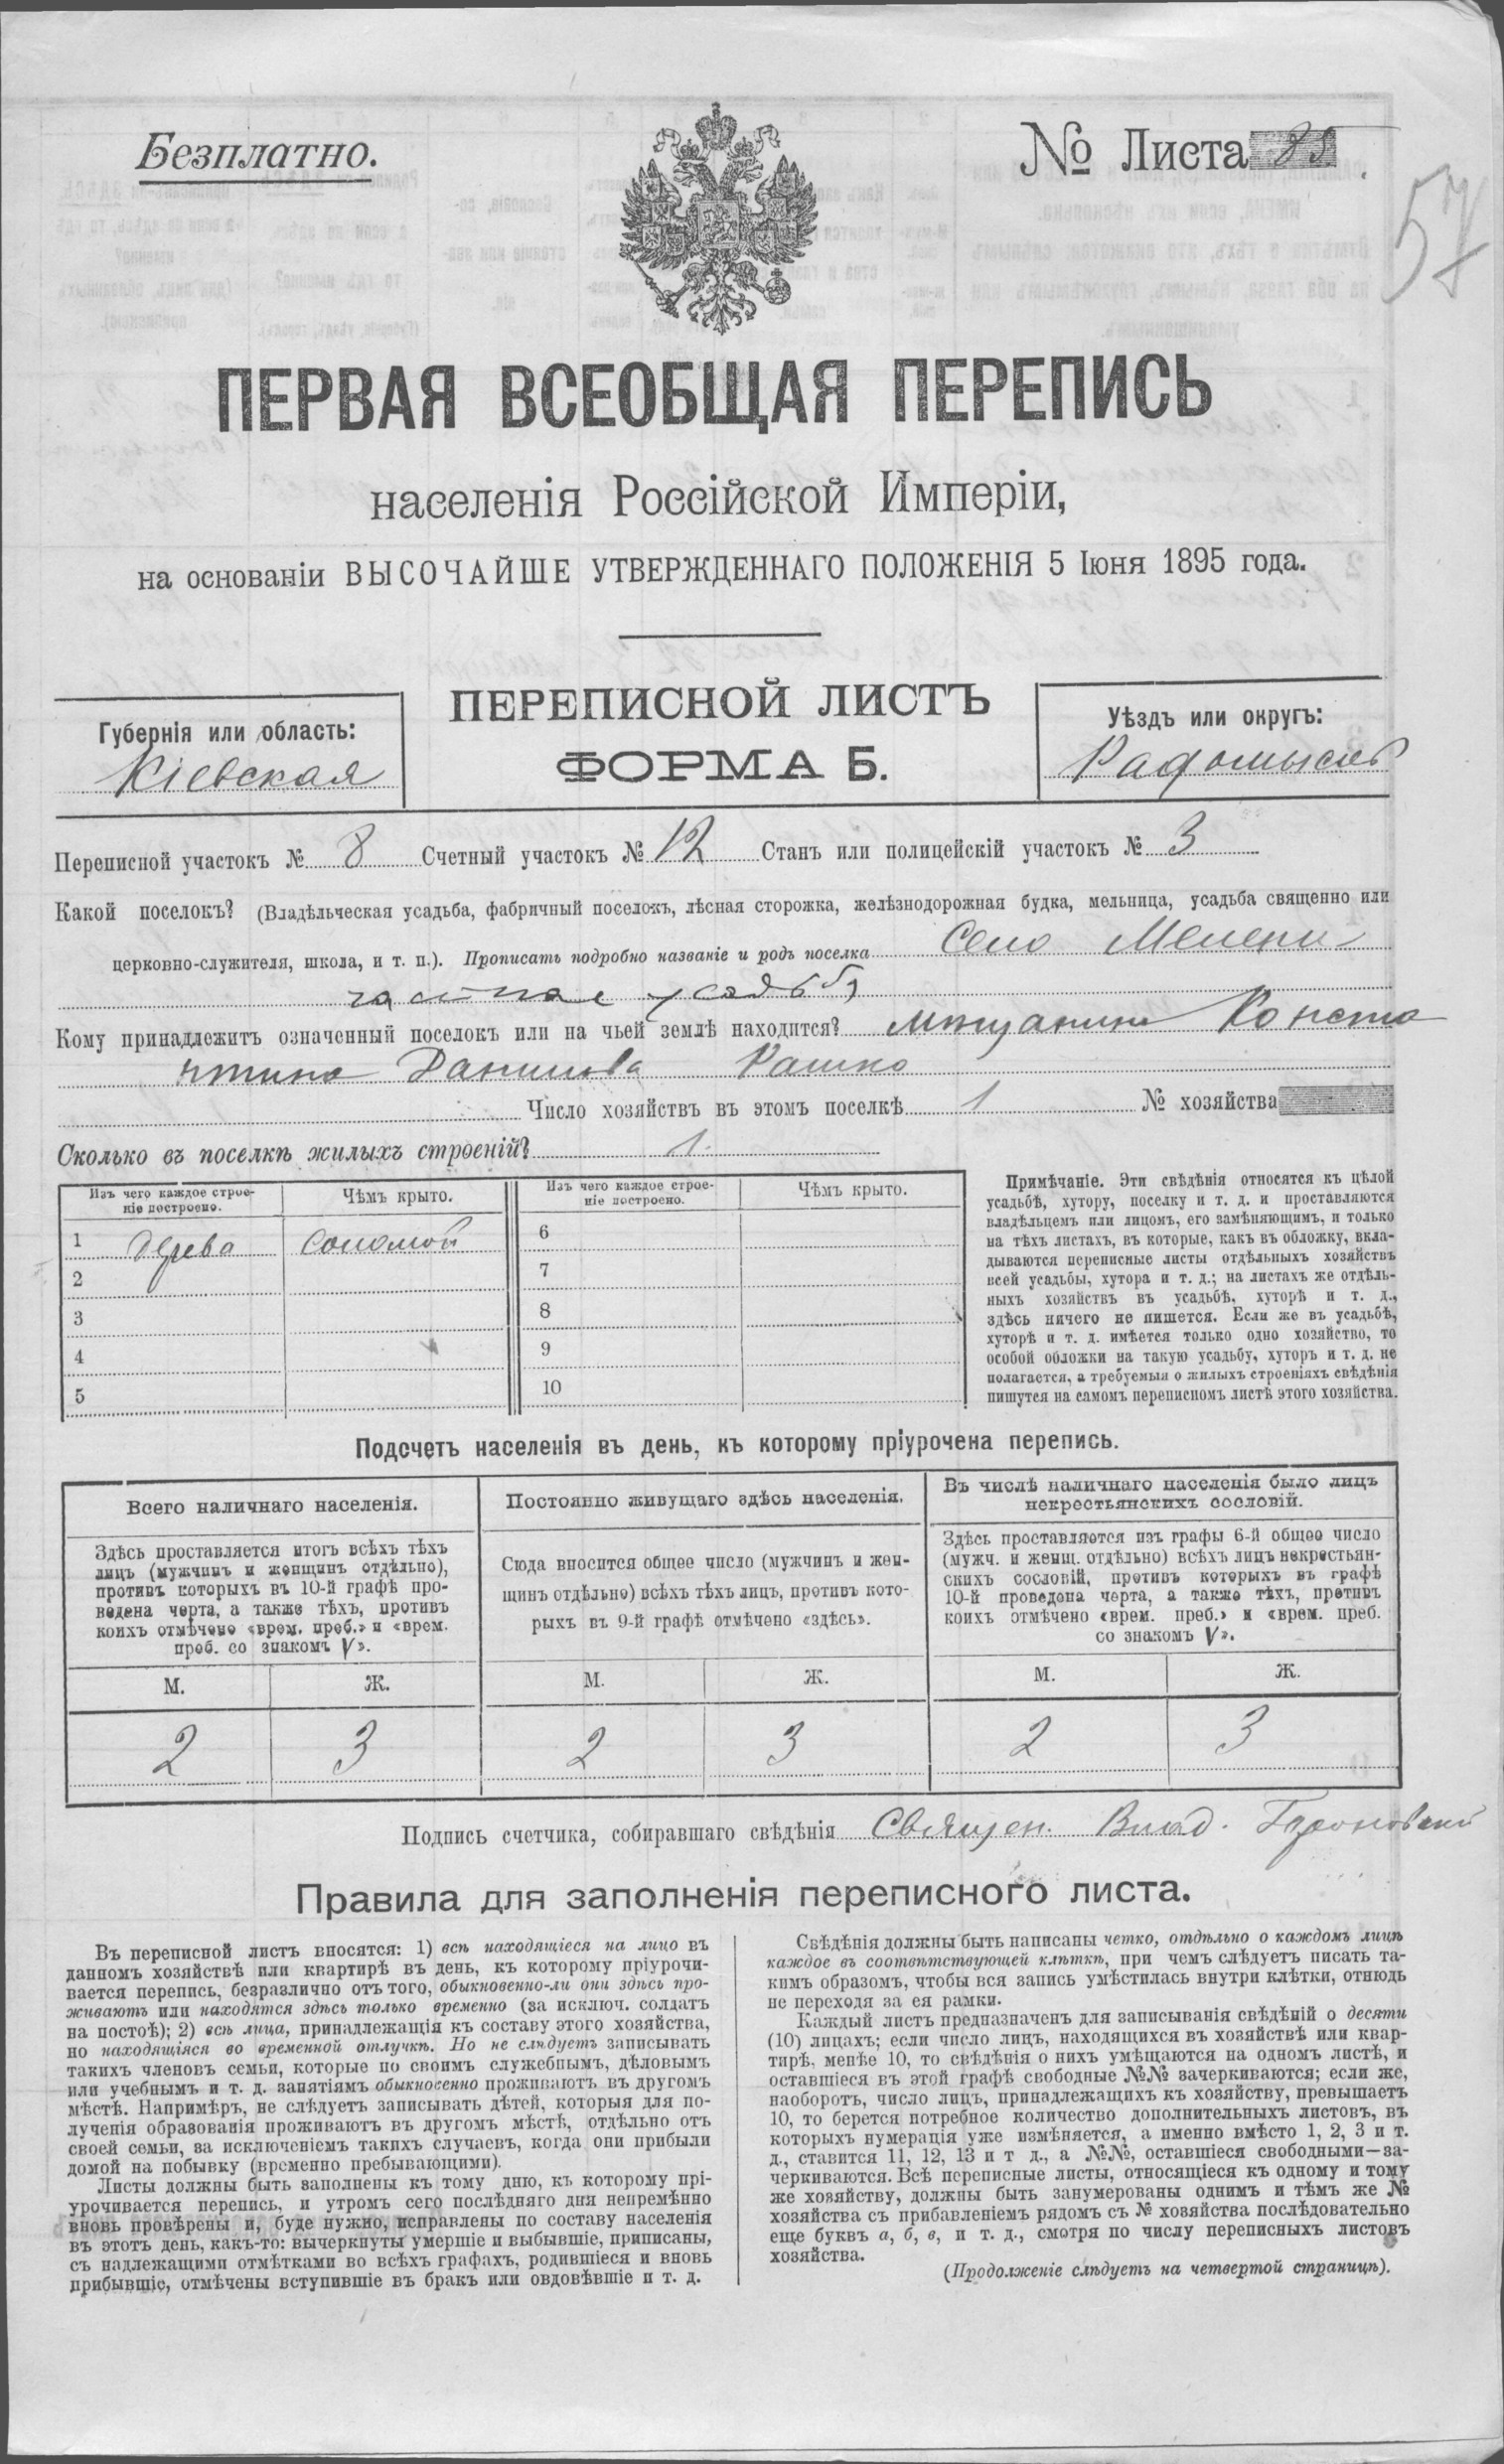 Безплатно.
№ Листа 85
57
ПЕРВАЯ ВСЕОБЩАЯ ПЕРЕПИСЬ
населенія Россійской Имперіи,
на основаніи ВЫСОЧАЙШЕ УТВЕРЖДЕННАГО ПОЛОЖЕНІЯ 5 Іюня 1895 года.
ПЕРЕПИСНОЙ ЛИСТЪ
ФОРМА Б.
Губернія или область:
Кіевская
Уѣздъ или округъ:
Радомысль
Переписной участокъ № 8 Счетный участокъ № 12 Станъ или полицейскій участокъ № 3
Какой поселокъ? (Владѣльческая усадьба, фабричный поселокъ, лѣсная сторожка, желѣзнодорожная будка, мельница, усадьба священно или
церковно-служителя, школа, и т. п.). Прописать подробно названіе и родъ поселка Село Мелени
частная усадьба
Кому принадлежитъ означенный поселокъ или на чьей землѣ находится? мѣщанина Конста
нтина Данилова Рашко
Число хозяйствъ въ этомъ поселкѣ 1 № хозяйства
Сколько въ поселкѣ жилыхъ строеній? 1.
Изъ чего каждое строе-
ніе построено.
Чѣмъ крыто.
Изъ чего каждое строе-
ніе построено.
Чѣмъ крыто.
1 дерева соломой
2
3
4
5
6
7
8
9
10
Примѣчаніе. Эти свѣдѣнія относятся къ цѣлой
усадьбѣ, хутору, поселку и т. д. и проставляются
владѣльцемъ или лицомъ, его замѣняющимъ, и только
на тѣхъ листахъ, въ которые, какъ въ обложку, вкла-
дываются переписные листы отдѣльныхъ хозяйствъ
всей усадьбы, хутора и т. д.; на листахъ же отдѣль-
ныхъ хозяйствъ въ усадьбѣ, хуторѣ и т. д.,
здѣсь ничего не пишется. Если же въ усадьбѣ,
хуторѣ и т. д. имѣется только одно хозяйство, то
особой обложки на такую усадьбу, хуторъ и т. д. не
полагается, а требуемыя о жилыхъ строеніяхъ свѣдѣнія
пишутся на самомъ переписномъ листѣ этого хозяйства.
Подсчетъ населенія въ день, къ которому пріурочена перепись.
Всего наличнаго населенія.
Здѣсь проставляется итогъ всѣхъ тѣхъ
лицъ (мужчинъ и женщинъ отдѣльно),
противъ которыхъ въ 10-й графѣ про-
ведена черта, а также тѣхъ, противъ
коихъ отмѣчено «врем. преб.» и «врем.
преб. со знакомъ V».
Постоянно живущаго здѣсь населенія.
Сюда вносится общее число (мужчинъ и жен-
щинъ отдѣльно) всѣхъ тѣхъ лицъ, противъ кото-
рыхъ въ 9-й графѣ отмѣчено «здѣсь».
Въ числѣ наличнаго населенія было лицъ
некрестьянскихъ сословій.
Здѣсь проставляются изъ графы 6-й общее число
(мужч. и женщ. отдѣльно) всѣхъ лицъ некрестьян-
скихъ сословій, противъ которыхъ въ графѣ
10-й проведена черта, а также тѣхъ, противъ
коихъ отмѣчено «врем. преб.» и «врем. преб.
со знакомъ V».
М. Ж. М. Ж. М. Ж.
2 3 2 3 2 3
Подпись счетчика, собиравшаго свѣдѣнія Священ. Влад.
Правила для заполненія переписного листа.
Въ переписной листъ вносятся: 1) всѣ находящіеся на лицо въ
данномъ хозяйствѣ или квартирѣ въ день, къ которому пріурочи-
вается перепись, безразлично отъ того, обыкновенно-ли они здѣсь про-
живаютъ или находятся здѣсь только временно (за исключ. солдатъ
на постоѣ); 2) всѣ лица, принадлежащія къ составу этого хозяйства,
но находящіяся во временной отлучкѣ. Но не слѣдуетъ записывать
такихъ членовъ семьи, которые по своимъ служебнымъ, дѣловымъ
или учебнымъ и т. д. занятіямъ обыкновенно проживаютъ въ другомъ
мѣстѣ. Напримѣръ, не слѣдуетъ записывать дѣтей, которыя для по-
лученія образованія проживаютъ въ другомъ мѣстѣ, отдѣльно отъ
своей семьи, за исключеніемъ такихъ случаевъ, когда они прибыли
домой на побывку (временно пребывающими).
Листы должны быть заполнены къ тому дню, къ которому прі-
урочивается перепись, и утромъ сего послѣдняго дня непремѣнно
вновь провѣрены и, буде нужно, исправлены по составу населенія
въ этотъ день, какъ-то: вычеркнуты умершіе и выбывшіе, приписаны,
съ надлежащими отмѣтками во всѣхъ графахъ, родившіеся и вновь
прибывшіе, отмѣчены вступившіе въ бракъ или овдовѣвшіе и т. д.
Свѣдѣнія должны быть написаны четко, отдѣльно о каждомъ лицѣ
каждое въ соотвѣтствующей клѣткѣ, при чемъ слѣдуетъ писать та-
кимъ образомъ, чтобы вся запись умѣстилась внутри клѣтки, отнюдь
не переходя за ея рамки.
Каждый листъ предназначенъ для записыванія свѣдѣній о десяти
(10) лицахъ; если число лицъ, находящихся въ хозяйствѣ или квар-
тирѣ, менѣе 10, то свѣдѣнія о нихъ умѣщаются на одномъ листѣ, и
оставшіеся въ этой графѣ свободные №№ зачеркиваются; если же,
наоборотъ, число лицъ, принадлежащихъ къ хозяйству, превышаетъ
10, то берется потребное количество дополнительныхъ листовъ, въ
которыхъ нумерація уже измѣняется, а именно вмѣсто 1, 2, 3 и т.
д., ставится 11, 12, 13 и т д., а №№, оставшіеся свободными—за-
черкиваются. Всѣ переписные листы, относящіеся къ одному и тому
же хозяйству, должны быть занумерованы однимъ и тѣмъ же №
хозяйства съ прибавленіемъ рядомъ съ № хозяйства послѣдовательно
еще буквъ а, б, в, и т. д., смотря по числу переписныхъ листовъ
хозяйства.
(Продолженіе слѣдуетъ на четвертой страницѣ).